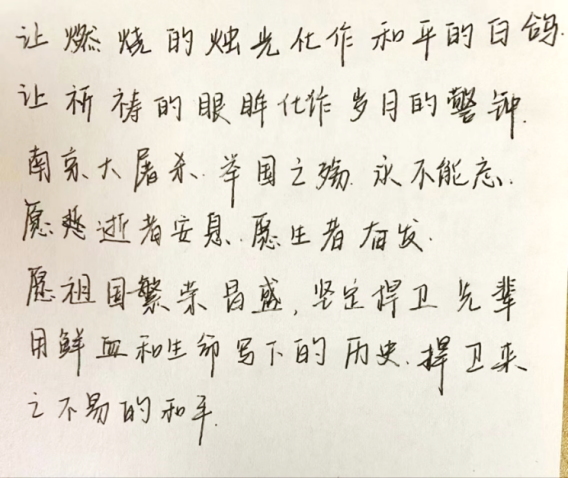 让燃烧的烛光化作和平的白鸽.
让祈祷的眼眸化作岁月的警钟.
南京大屠杀.举国之殇.永不能忘.
愿逝者安息.愿生者奋发.
愿祖国繁荣昌盛,坚定捍卫先辈
用鲜血和生命写下的历史.捍卫来
之不易的和平.